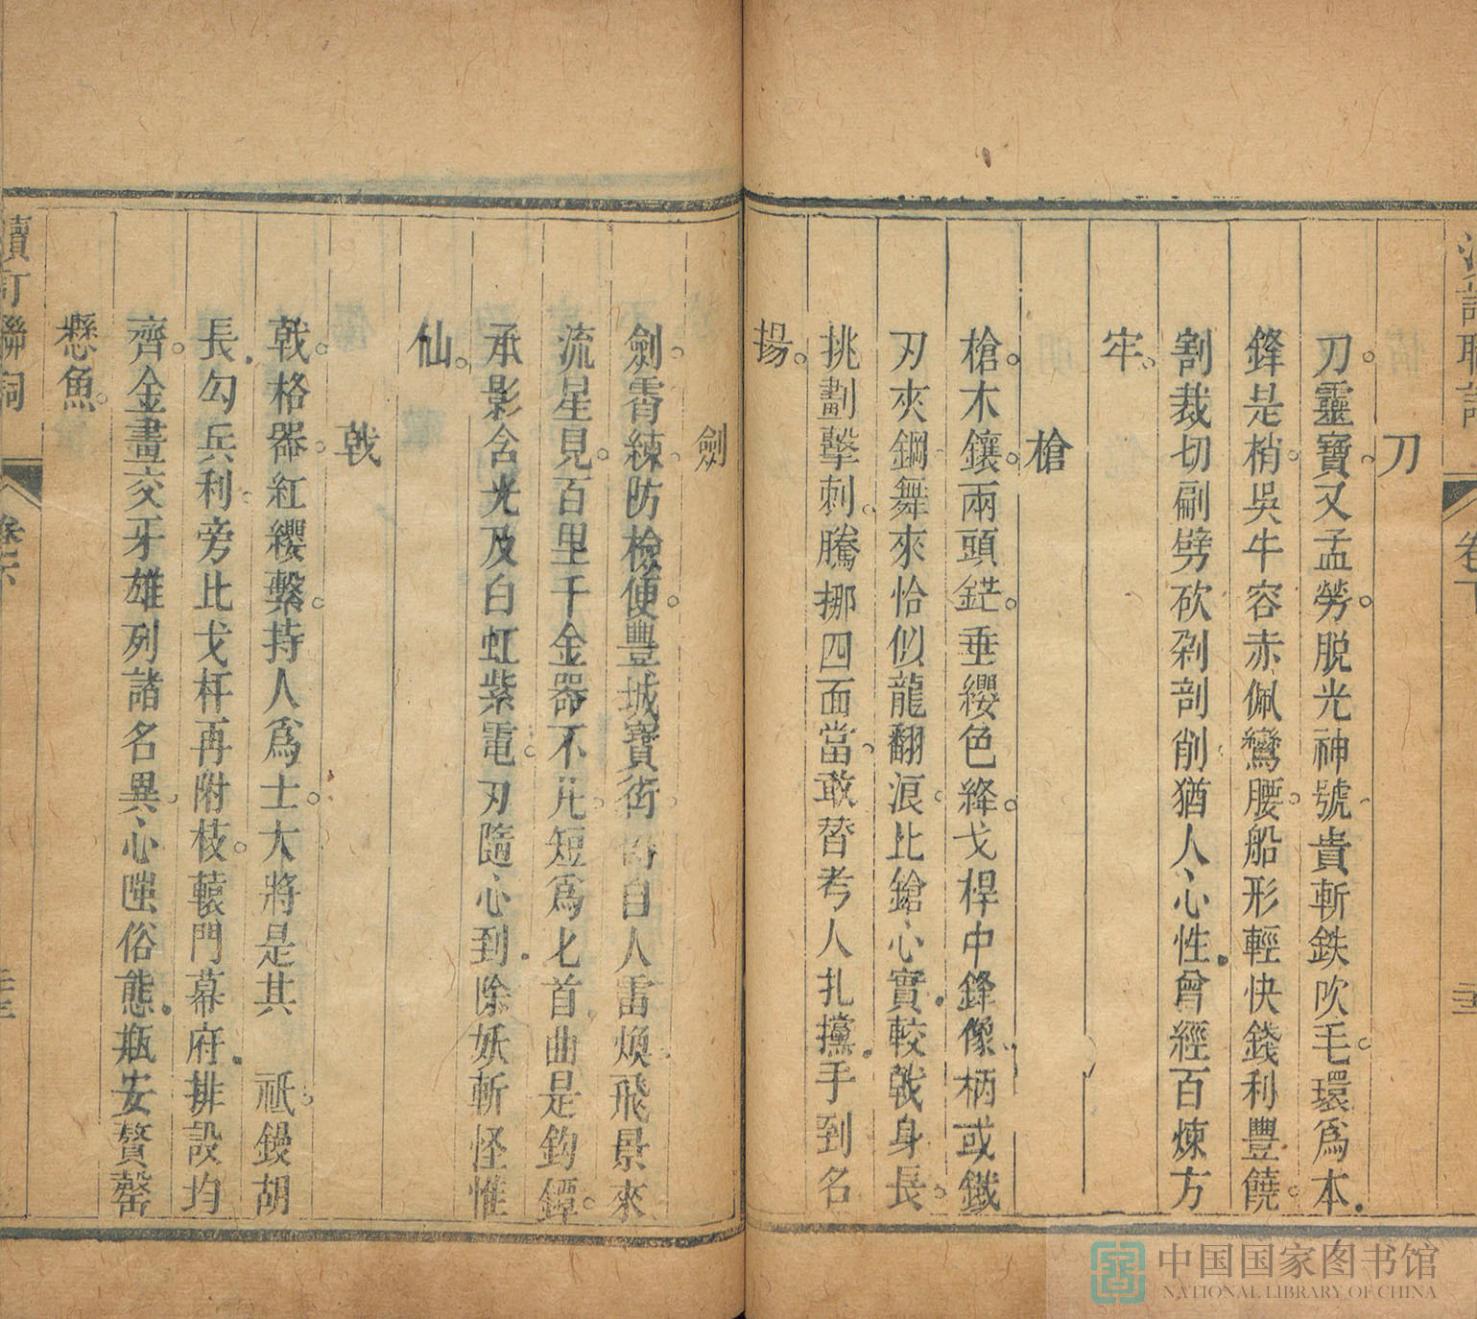 刀
刀靈寶又孟勞脱光神號貴斬鉄吹毛環爲本
鋒是梢吳牛容赤佩鸞腰船形輕快錢利豐饒
割裁切刷劈砍剁剖削猶人心性曾經百煉方
牢
槍
槍木鑲兩頭鋩垂纓色絳戈桿中鋒像柄或鐵
刃夾鋼舞來恰似龍翻浪比鎗心實較戟身長
挑劃擊刺騰挪四面當敢替考人扎攩手到名
揚
劍
劍霄練防檢便豐城寶 自人雷煥飛景來
流星見百里千金器不 短爲匕首曲是鈎鐔
承影含光及白虹紫電刃隨心到除妖斬怪惟
仙
戟
戟格器紅纓繫持人爲士大將是其 祗鏝胡
長勾兵利旁比戈杆再附枝轅門幕府排設均
齊金畫交牙雄列諸名異心嗤俗態瓶安贅罄
懸魚
續訂聯詞
卷下
中国国家图书馆
NATIONAL LIBRARY OF CHINA